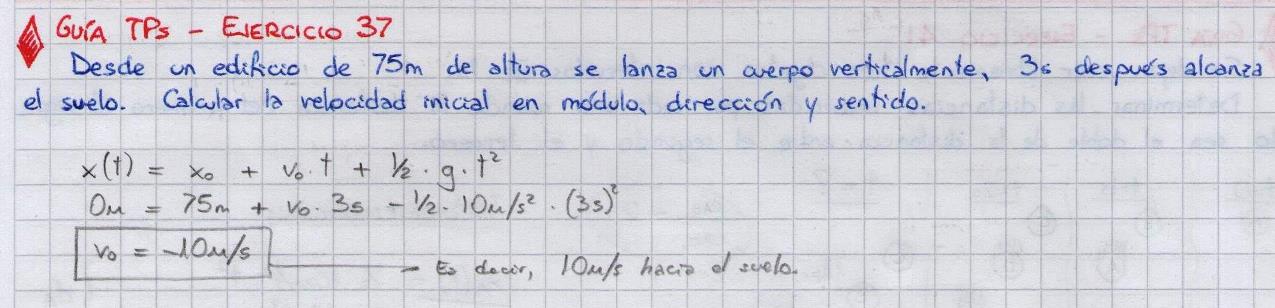 GUÍA TPs - EJERCICIO 37
Desde un edificio de 75m de altura se lanza un cuerpo verticalmente, 3s después alcanza
el suelo. Calcular la velocidad inicial en módulo, dirección y sentido.
x(t) = x₀ + v₀.t + 1/2 . g . t²
0m = 75m + v₀. 3s - 1/2. 10m/s² . (3s)²
v₀ = -10m/s - Es decir, 10m/s hacia el suelo.